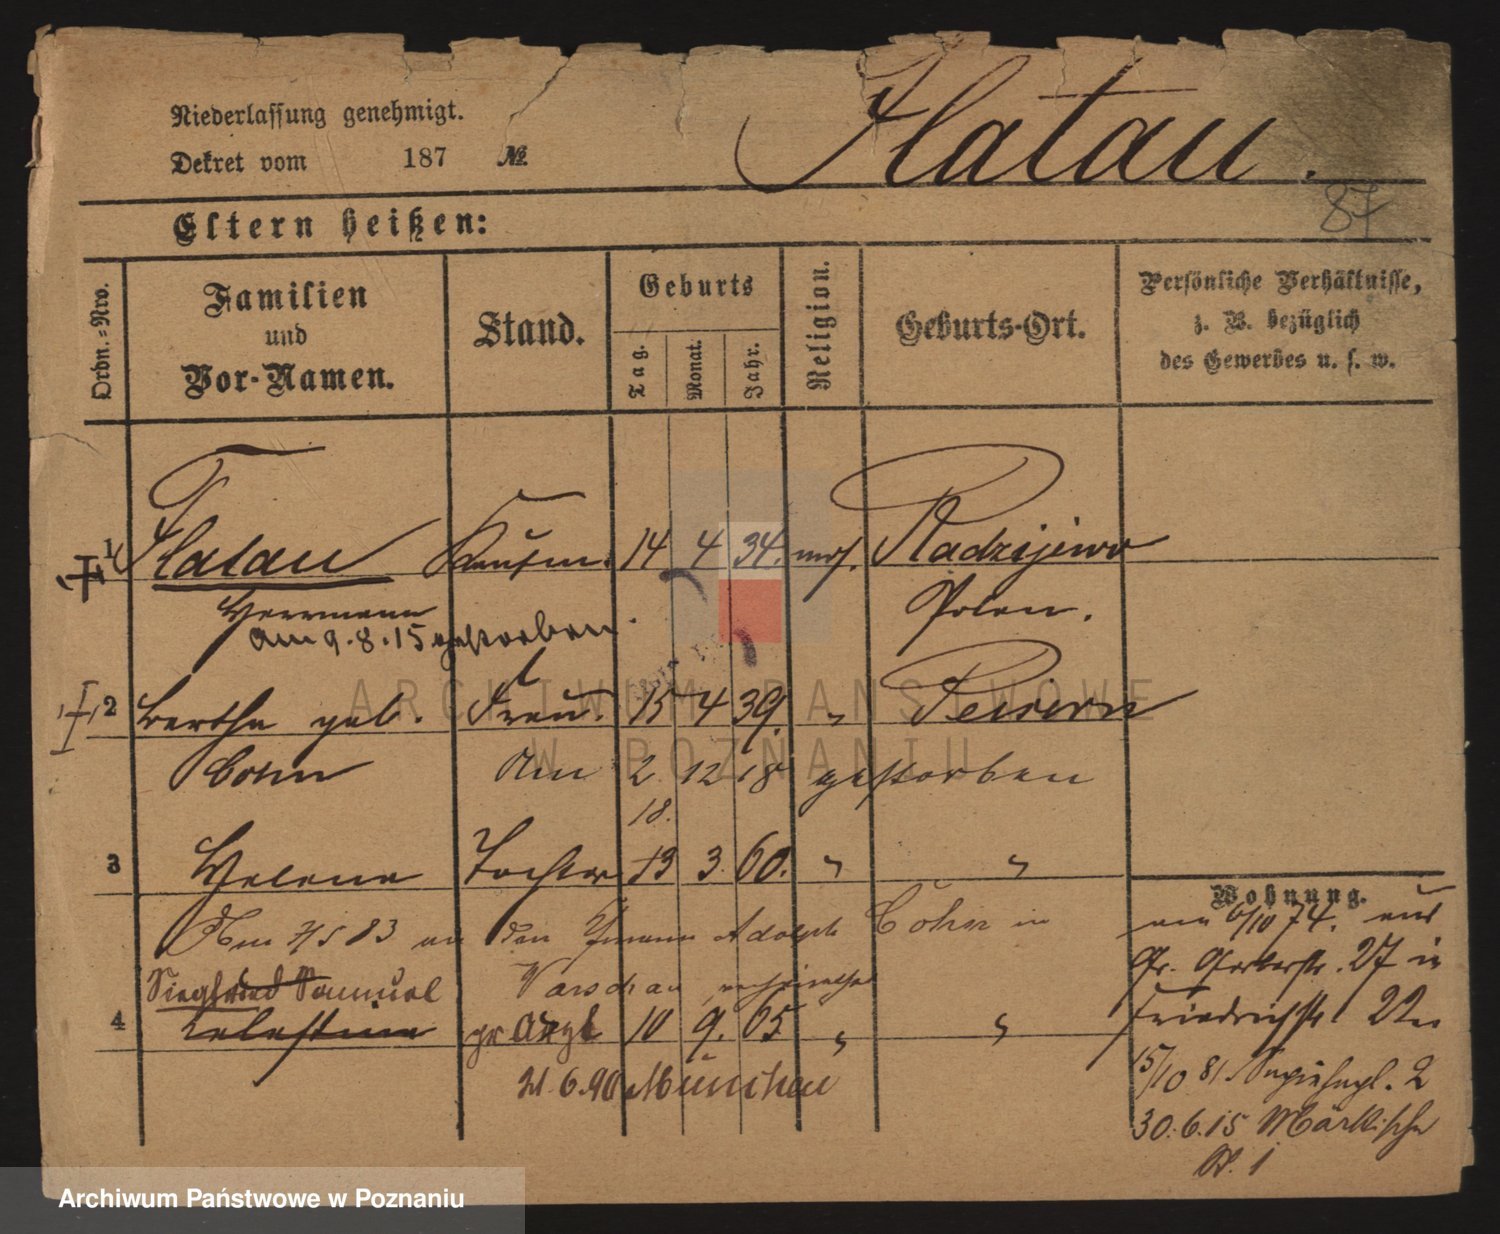 Niederlassung genehmigt.
Dekret vom 187 №
Flatau.
87
Eltern heißen:
Ordn.-Nro.
Familien und Vor-Namen.
Stand.
Geburts
Tag. Monat. Jahr.
Religion.
Geburts-Ort.
Persönliche Verhältnisse,
z. B. bezüglich
des Gewerbes u. s. w.
1 Flatau Kaufm. 14 4 34. mos. Radzijewo
Herrmann Polen.
am 9.8.15 gestorben.
2 Bertha geb. Frau. 15 4 39. " Peisern
Cohn Am 2 12 18 gestorben
18.
3 Helene Tochter 13 3. 60. " "
Wohnung.
Am 7/5 83 an den Adolph Cohn in
Warschau verheirathet
am 6/10 74. aus
Gr. Gerberstr. 27 in
Siegfried Samuel
4 Celestine pr Arzt 10 9. 65 " "
Friedrichstr 22
21.6.90 München
15/10 81 2
30.6.15 Märkische
Str. 1
ARCHIWUM PAŃSTWOWE
W POZNANIU
Archiwum Państwowe w Poznaniu